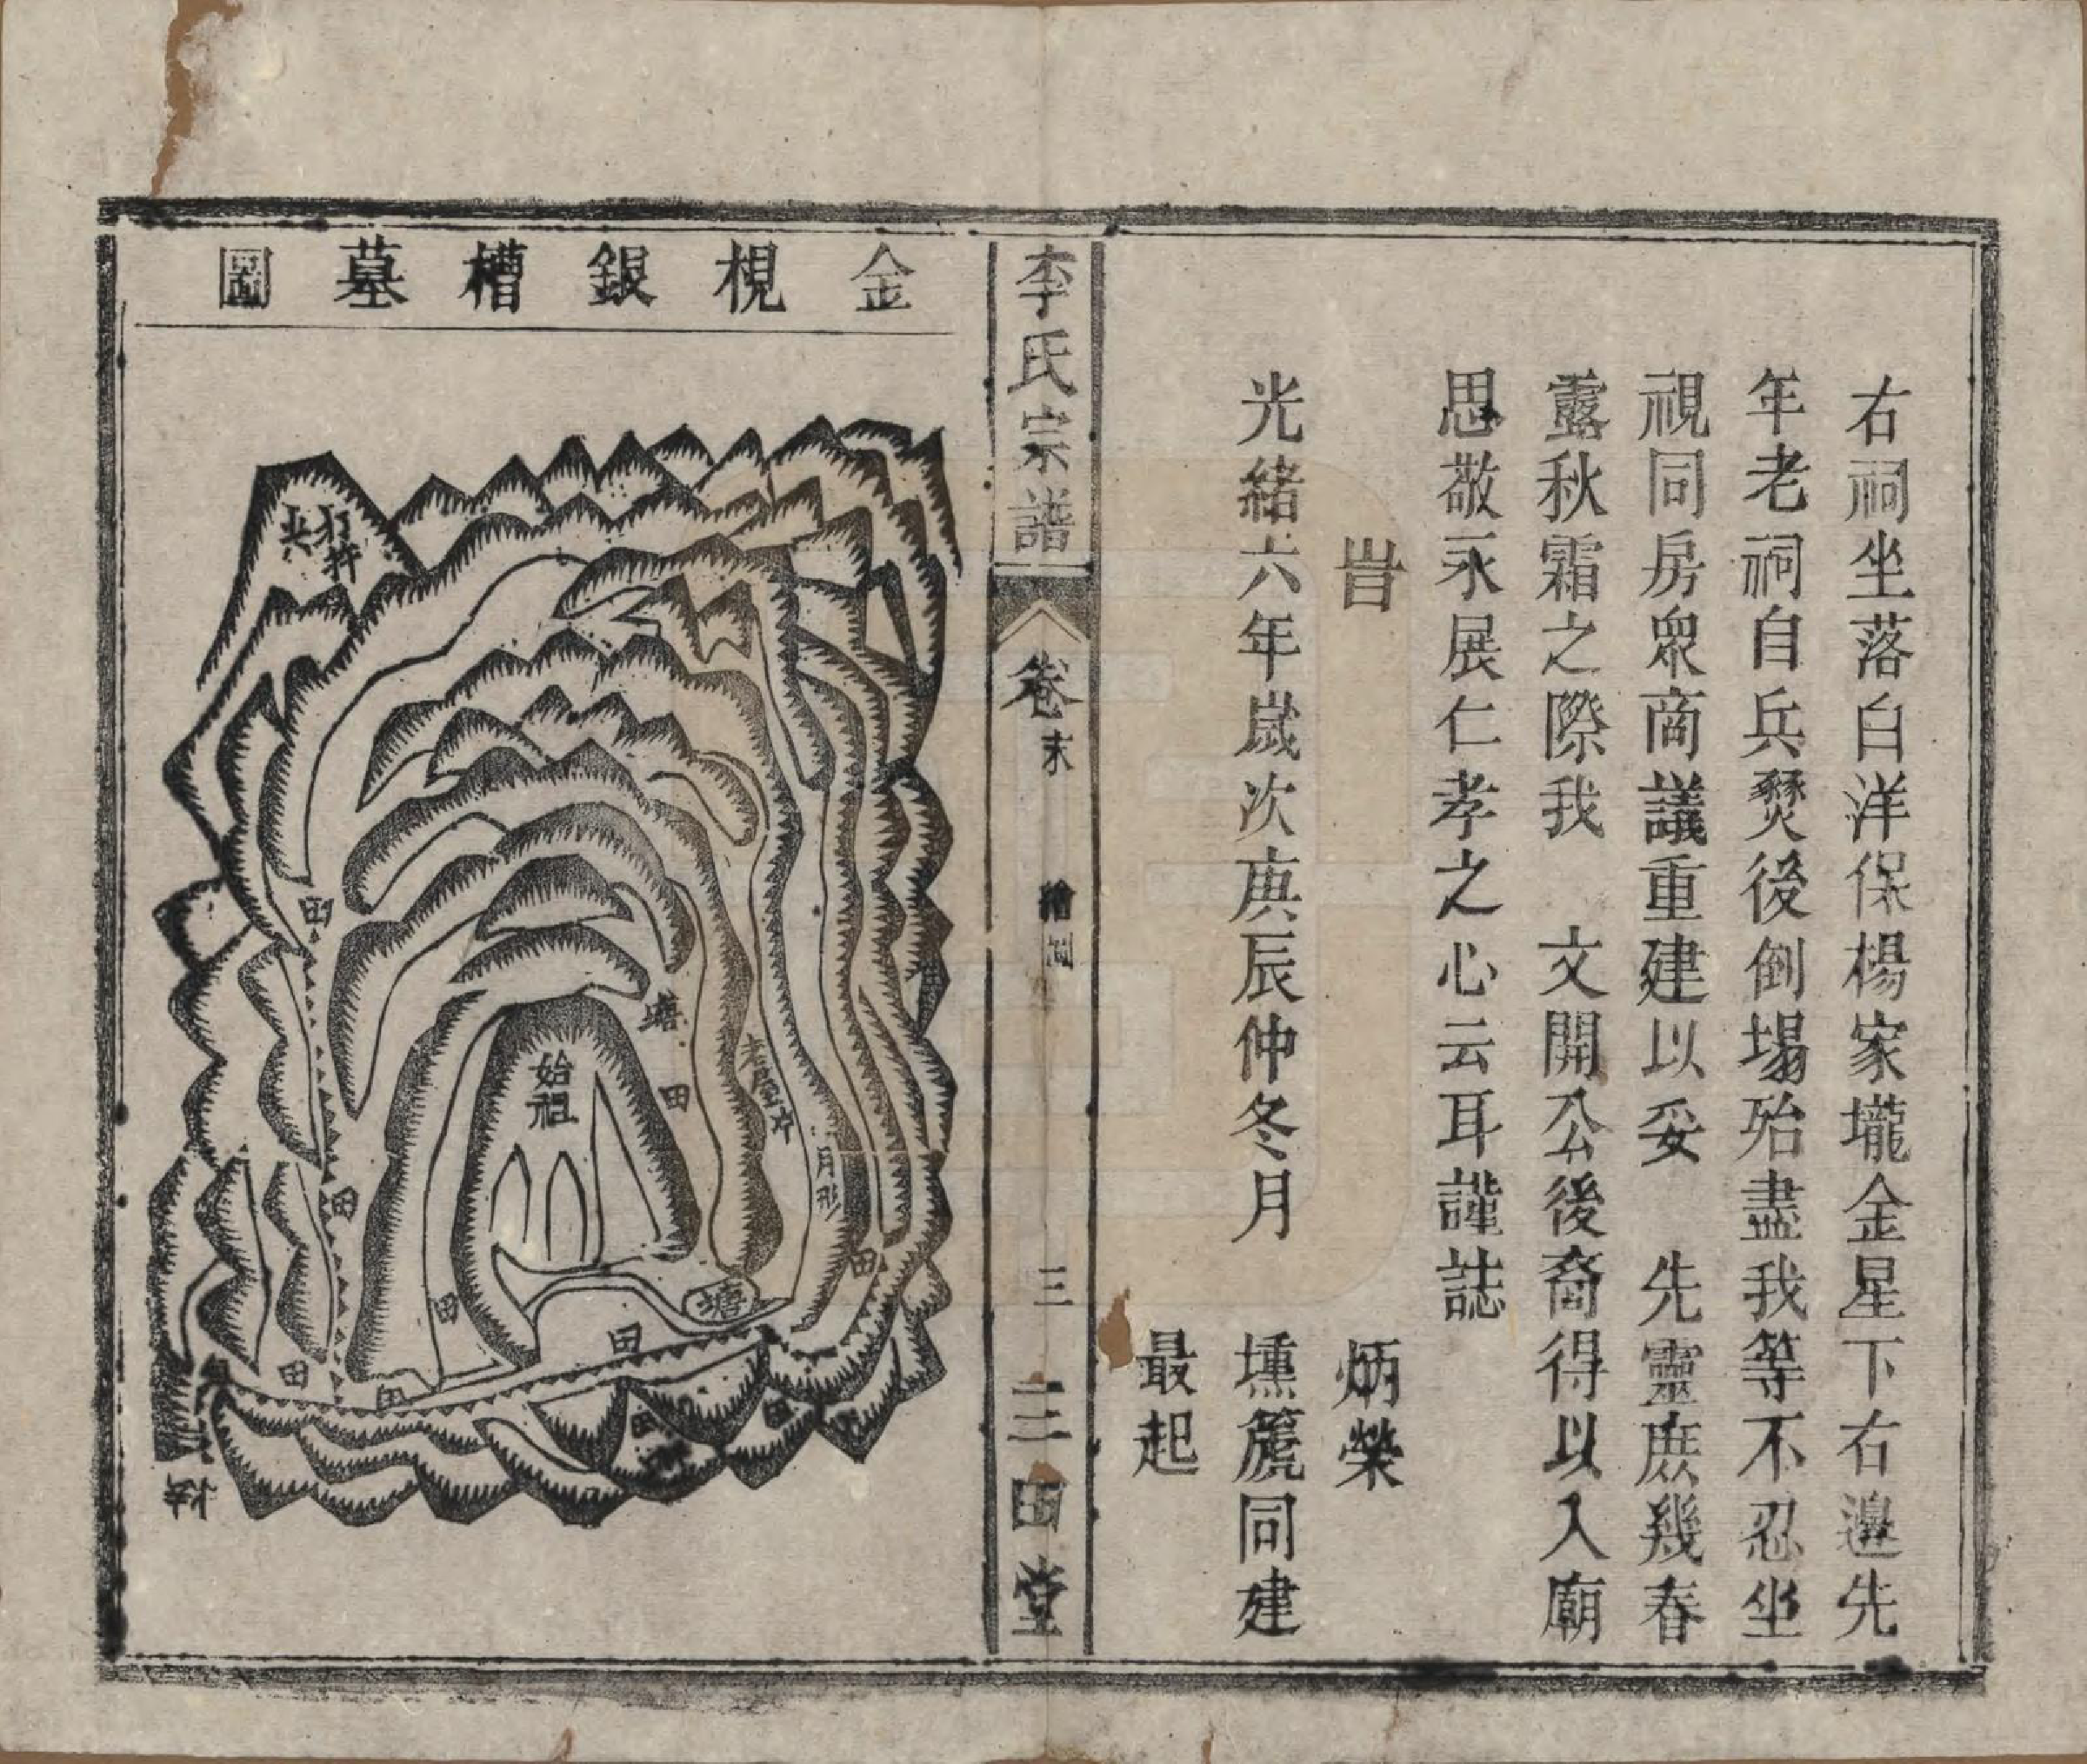 右祠坐落白洋保楊家壠金星下右邊先
年老祠自兵燹後倒塌殆盡我等不忍坐
視同房眾商議重建以妥　先靈庶幾春
露秋霜之際我　文開公後裔得以入廟
思敬永展仁孝之心云耳謹誌
旹　炳榮
光緒六年歲次庚辰仲冬月　壎篪同建
最起
李氏宗譜　卷末　繪圖　三　三田堂
金梘銀槽墓圖
始祖
塘
田
老屋冲
月形
田
塘
田
田
田
田
田
田
田
田